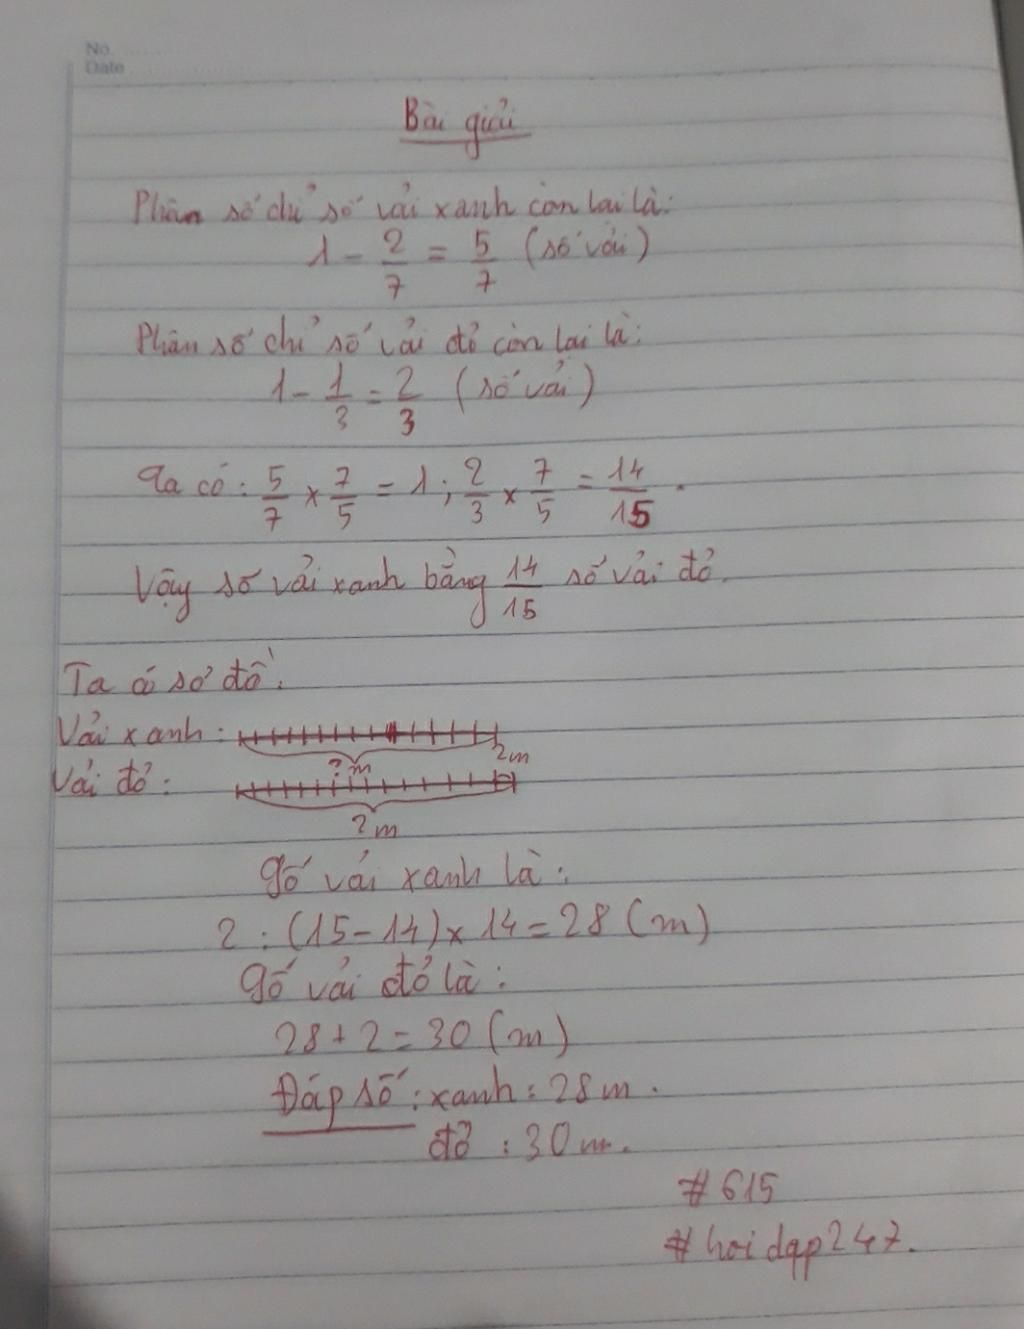 No.
Date
Bài giải
Phân số chỉ số vải xanh còn lại là:
1 - 2/7 = 5/7 (số vải)
Phân số chỉ số vải đỏ còn lại là:
1 - 1/3 = 2/3 (số vải)
Ta có: 5/7 x 7/5 = 1; 2/3 x 7/5 = 14/15.
Vậy số vải xanh bằng 14/15 số vải đỏ.
Ta có sơ đồ:
Vải xanh:
? m
2m
Vải đỏ:
? m
Số vải xanh là:
2 : (15 - 14) x 14 = 28 (m)
Số vải đỏ là:
28 + 2 = 30 (m)
Đáp số: xanh: 28m.
đỏ: 30m.
#615
#hoidap247.